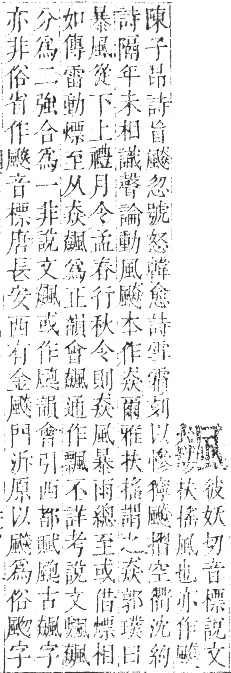 彼妖切音標說文
扶搖風也亦作飈
陳子昂詩旨飈忽號怒韓愈詩雪霜刻以慘獰飈摺空衢沈約
詩隔年未相識聲論動風飈本作猋爾雅扶搖謂之猋郭璞曰
暴風從下上禮月令孟春行秋令則猋風暴雨總至或借熛相
如傳雷動熛至从猋飆為正韻會飆通作飄不詳考說文飄飆
分為二強合為一非說文飆或作颮韻會引西都賦颮古飆字
亦非俗省作飈音標唐長安西有金飈門泝原以飈為俗颷字